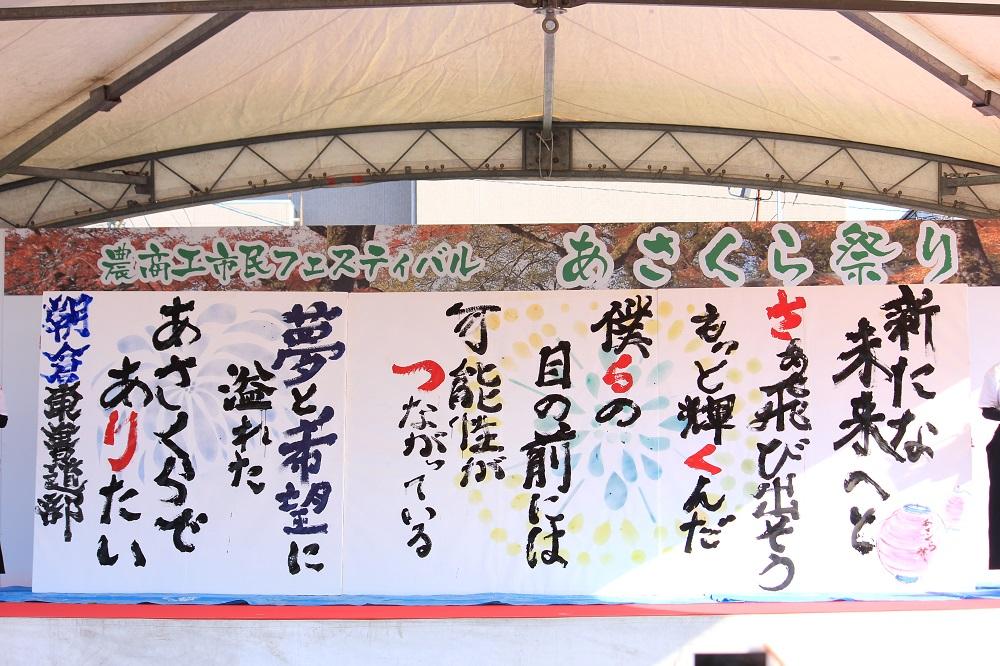 農商工市民フェスティバル あさくら祭り
新たな
未来へと
さぁ飛び出そう
もっと輝くんだ
僕らの
目の前には
可能性が
つながっている
夢と希望に
溢れた
あさくらで
ありたい
朝倉東書道部